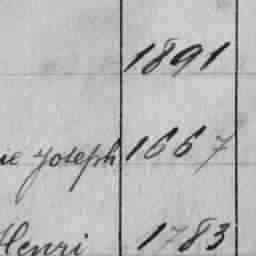 1891
ie Joseph 1667
Henri 1783